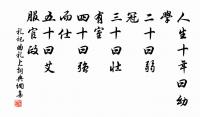 人生十年曰幼
學
二十曰弱
冠
三十曰壯
有室
四十曰強
而仕
五十曰艾
服官政
礼記曲礼上